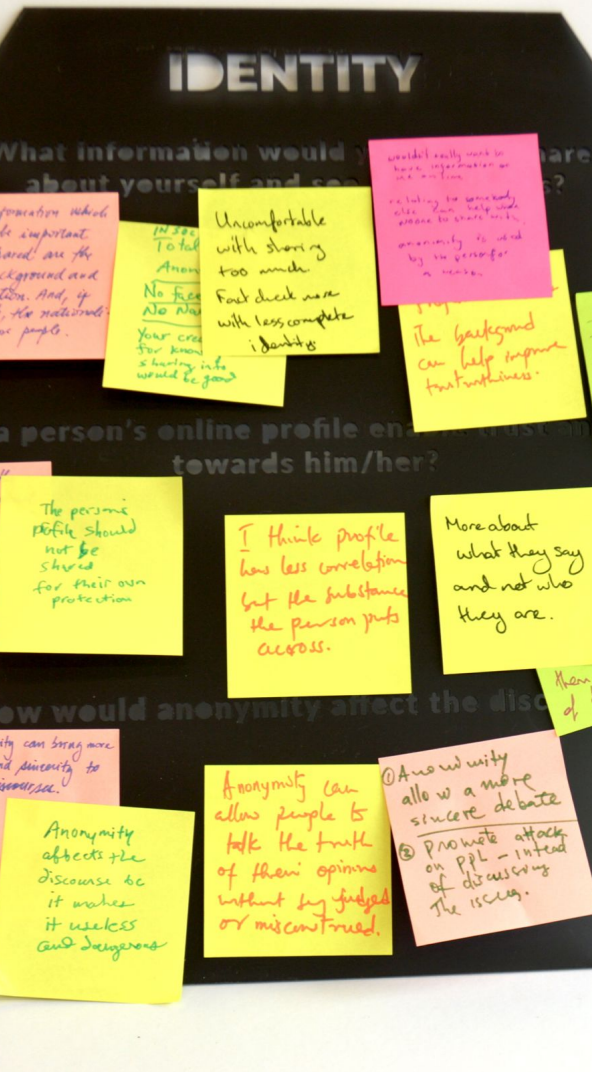 IDENTITY
What information would y
hare
about yourself and so
s?
formation which
be important
hared are the
ckground and
tion. And, if
, the nationali
people.
IN SOC
Total
Anon
No face
No Na
Your cre
for know
sharing info
would be good
Uncomfortable
with sharing
too much.
Fact check more
with less complete
identity.
wouldn't really want to
have information on
me online
relating to somebody
else can help when
anonymity is used
by the person for
a reason.
The background
can help improve
trustworthiness.
a person's online profile enable trust an
towards him/her?
The persons
profile should
not be
shared
for their own
protection
I think profile
has less correlation
but the substance
the person puts
across.
More about
what they say
and not who
they are.
them
of
ow would anonymity affect the disc
ity can bring more
nd sincerity to
discourses.
Anonymity
affects the
discourse bc
it makes
it useless
and dangerous
Anonymity can
allow people to
talk the truth
of their opinion
without judged
or misconstrued.
① Anonimity
allow a more
sincere debate
② Promote attack
on ppl - intead
of discussing
the issues.